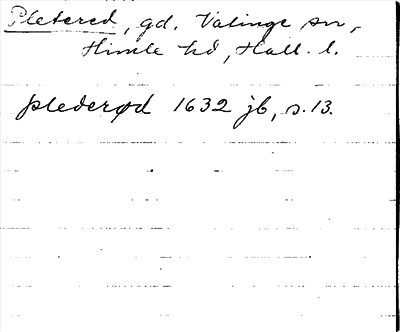 Pletered, gd. Valinge sn,
Himle hd, Hall. l.
plederød 1632 jb, s. 13.